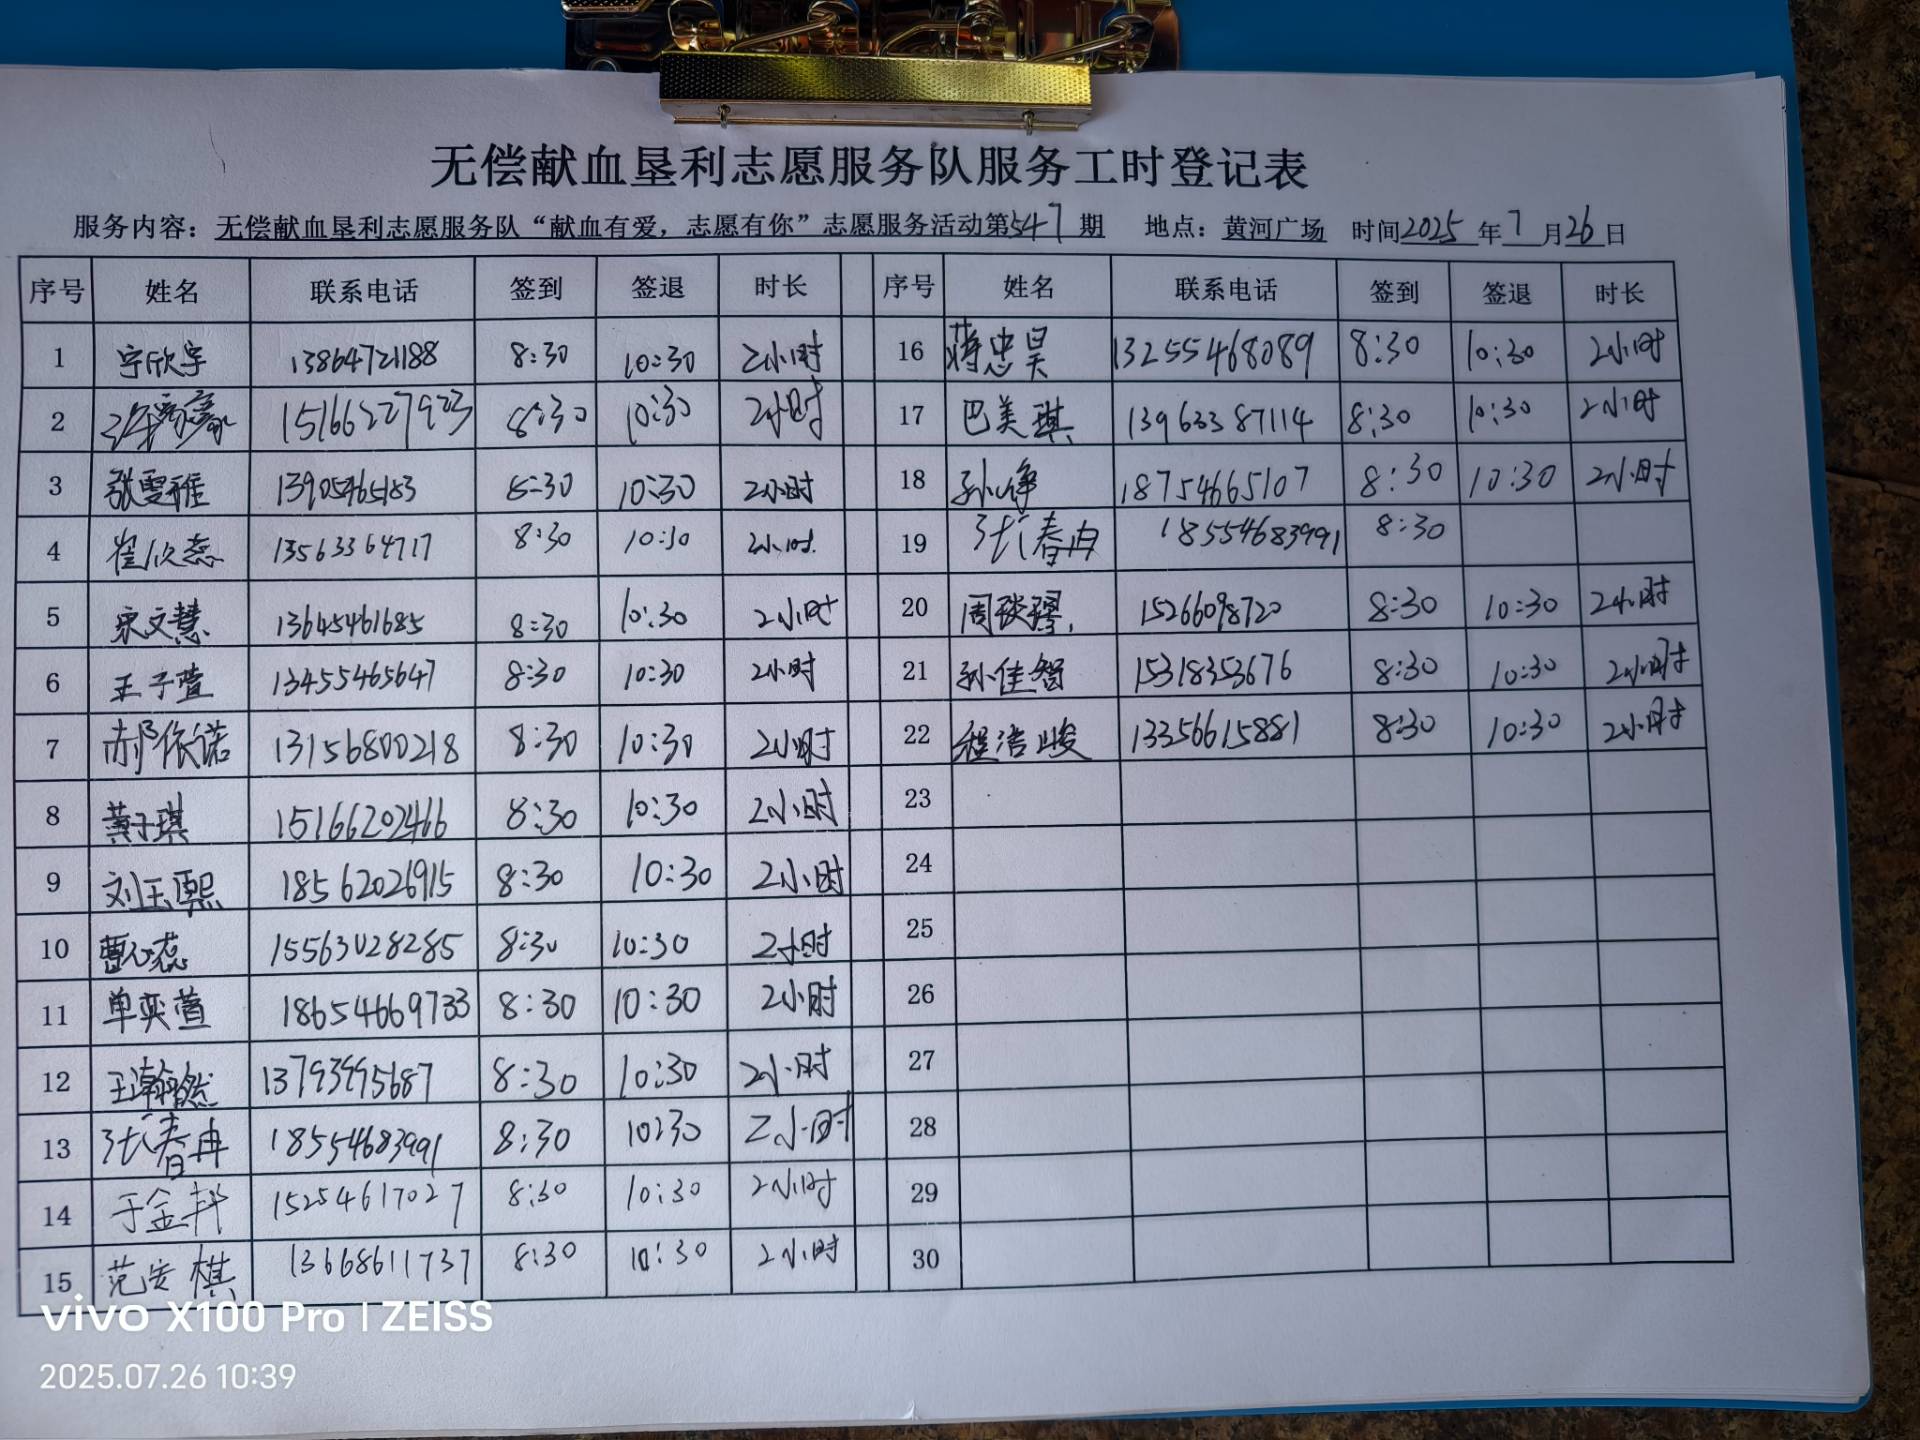 无偿献血垦利志愿服务队服务工时登记表
服务内容：无偿献血垦利志愿服务队“献血有爱，志愿有你”志愿服务活动第547期 地点：黄河广场 时间2025年7月26日
序号 姓名 联系电话 签到 签退 时长 序号 姓名 联系电话 签到 签退 时长
1 宇欣宇 13864721188 8:30 10:30 2小时 16 蒋忠昊 13255468089 8:30 10:30 2小时
2 15166227923 8:30 10:30 2小时 17 巴美琪 13963387114 8:30 10:30 2小时
3 张雯雅 13905465183 8:30 10:30 2小时 18 孙峥 18754665107 8:30 10:30 2小时
4 崔欣蕊 13563364717 8:30 10:30 2小时 19 张春冉 18554683991 8:30
5 宋文慧 13645461685 8:30 10:30 2小时 20 周 15266098720 8:30 10:30 2小时
6 王子萱 13455465647 8:30 10:30 2小时 21 孙佳智 15318353676 8:30 10:30 2小时
7 郝依诺 13156800218 8:30 10:30 2小时 22 程浩峻 13356615881 8:30 10:30 2小时
8 黄子琪 15166202466 8:30 10:30 2小时 23
9 刘玉熙 18562026915 8:30 10:30 2小时 24
10 曹心蕊 15563028285 8:30 10:30 2小时 25
11 单奕萱 18654669733 8:30 10:30 2小时 26
12 王瀚然 13793995687 8:30 10:30 2小时 27
13 张春冉 18554683991 8:30 10:30 2小时 28
14 于金 15254617027 8:30 10:30 2小时 29
15 范安棋 13668611737 8:30 10:30 2小时 30
vivo X100 Pro | ZEISS
2025.07.26 10:39